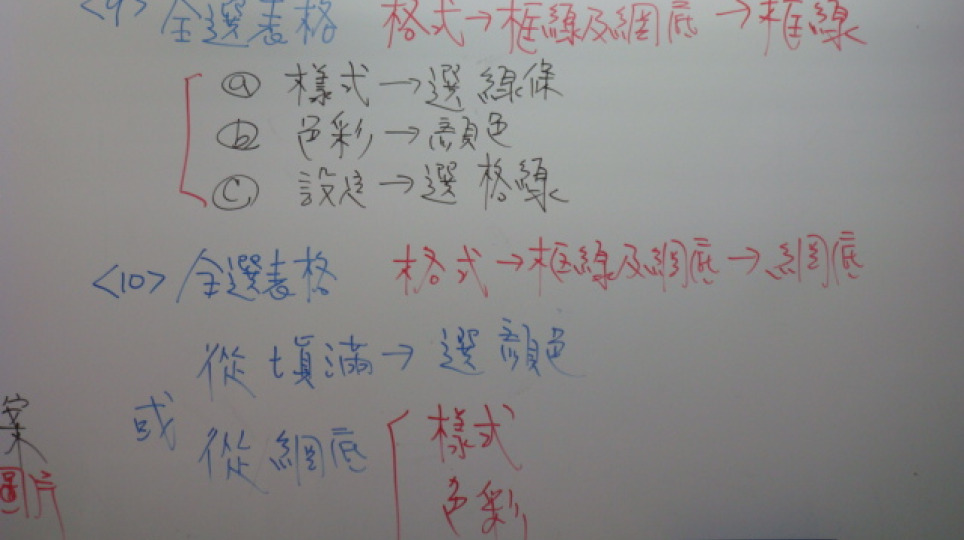 <9> 全選表格 格式→框線及網底→框線
ⓐ 樣式→選線條
ⓑ 色彩→顏色
ⓒ 設定→選格線
<10> 全選表格 格式→框線及網底→網底
從填滿→選顏色
或 從網底 樣式
色彩
案
圖片